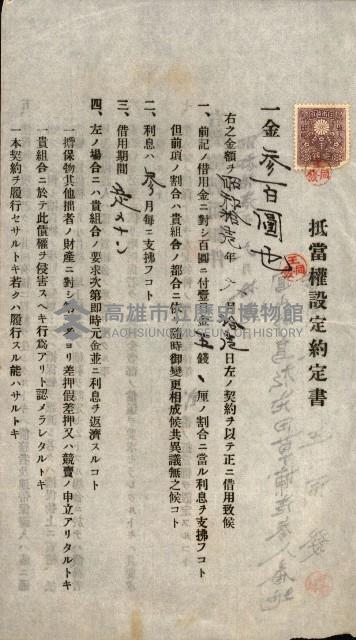 抵當權設定約定書
一金參百圓也
右之金額ヲ昭和 年 月 日左ノ契約ヲ以テ正ニ借用致候
一、前記ノ借用金ニ對シ百圓ニ付壹 金五錢 厘ノ割合ニ當ル利息ヲ支拂フコト
但前項ノ割合ハ貴組合ノ都合ニ依リ隨時御變更相成候共異議無之候コト
二、利息ハ參月每ニ支拂フコト
三、借用期間
四、左ノ場合ニハ貴組合ノ要求次第卽時元金並ニ利息ヲ返濟スルコト
一擔保物其他拙者ノ財產ニ對シ ヨリ差押假差押又ハ競賣ノ申立アリタルトキ
一貴組合ニ於テ此債權ヲ侵害スヘキ行爲アリト認メラレタルトキ
一本契約ヲ履行セサルトキ若クハ履行スル能ハサルトキ
高雄市立歷史博物館
KAOHSIUNG MUSEUM OF HISTORY